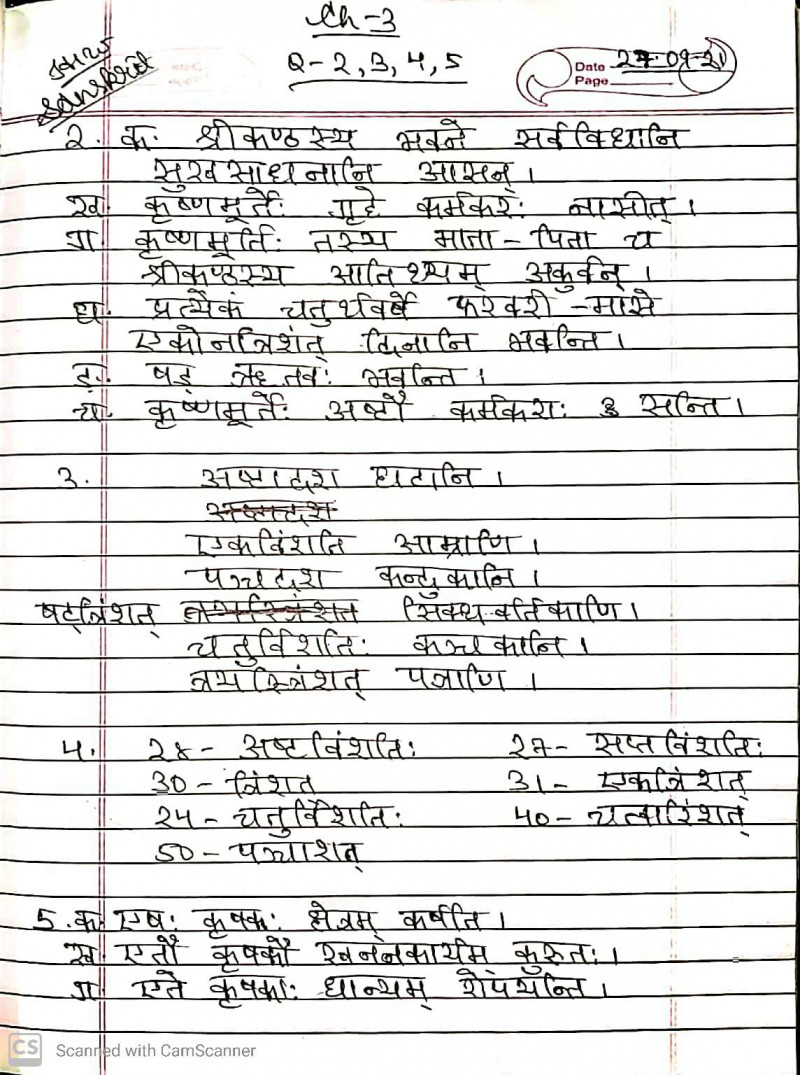 Ch-3
Q-2, 3, 4, 5
Sanskrit
Date 27.09.21
Page
2. क. श्रीकण्ठस्य भवने सर्वविधानि
सुखसाधनानि आसन्।
ख. कृष्णमूर्तेः गृहे कर्मकरः नासीत्।
ग. कृष्णमूर्तिः तस्य माता-पिता च
श्रीकण्ठस्य आतिथ्यम् अकुर्वन्।
घ. प्रत्येकं चतुर्थवर्षे फरवरी-मासे
एकोनत्रिशंत् दिनानि भवन्ति।
ङ. षड् ऋतवः भवन्ति।
च. कृष्णमूर्तेः अष्टौ कर्मकराः सन्ति।
3. अष्टादश घटानि।
अष्टादश
एकविंशति आम्राणि।
पञ्चदश कन्दुकानि।
षट्त्रिंशत् त्रयस्त्रिंशत सिक्थ-वर्तिकाणि।
चतुर्विशतिः कञ्चकानि।
त्रयस्त्रिंशत् पत्राणि।
4. 28- अष्टविंशतिः 27- सप्तविंशतिः
30- त्रिंशत 31- एकत्रिंशत्
24- चतुर्विंशतिः 40- चत्वारिंशत्
50- पञ्चाशत्
5. क. एषः कृषकः क्षेत्रम् कर्षति।
ख. एतौ कृषकौ खननकार्यम् कुरुतः।
ग. एते कृषकाः धान्यम् रोपयन्ति।
CS Scanned with CamScanner